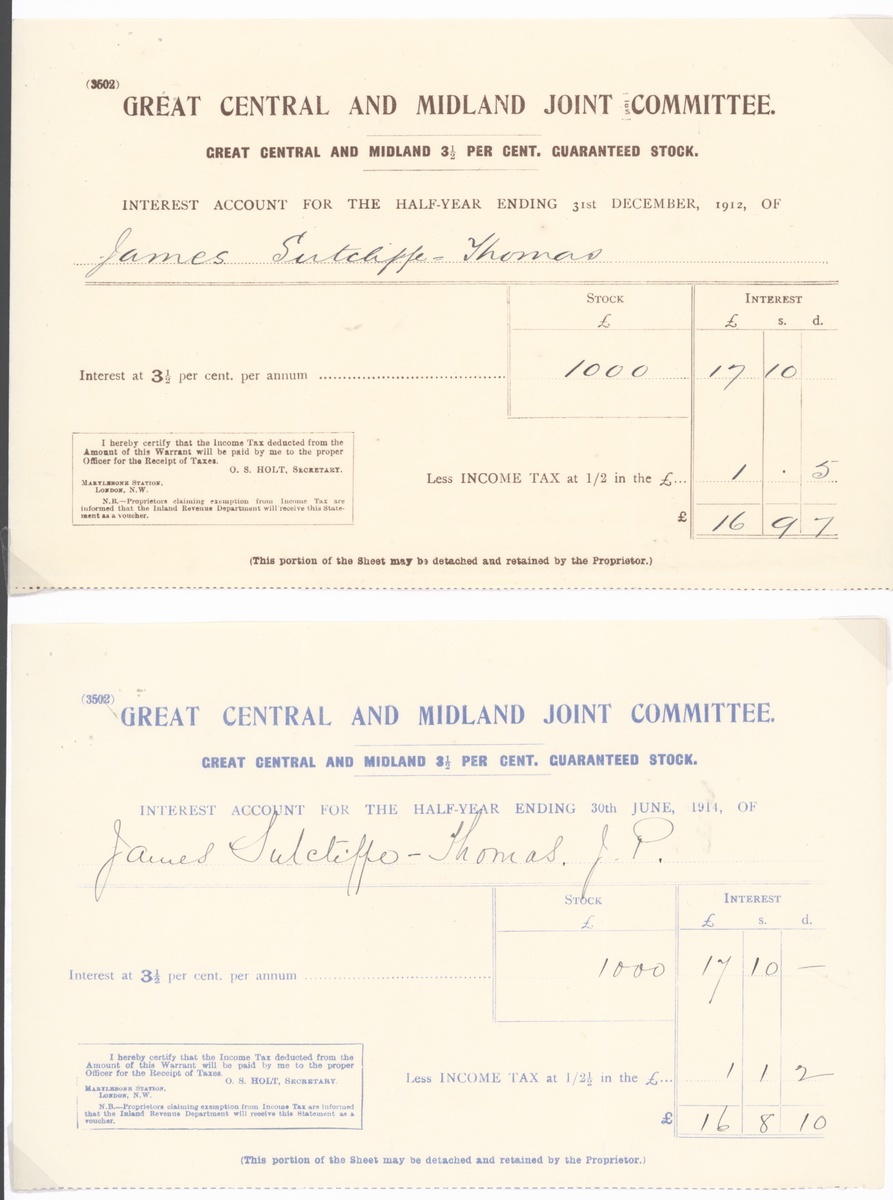 (3502)
GREAT CENTRAL AND MIDLAND JOINT COMMITTEE.
GREAT CENTRAL AND MIDLAND 3½ PER CENT. GUARANTEED STOCK.
INTEREST ACCOUNT FOR THE HALF-YEAR ENDING 31st DECEMBER, 1912, OF
James Sutcliffe-Thomas
STOCK INTEREST
£ £ s. d.
Interest at 3½ per cent. per annum 1000 17 10
I hereby certify that the Income Tax deducted from the
Amount of this Warrant will be paid by me to the proper
Officer for the Receipt of Taxes.
O. S. HOLT, SECRETARY.
MARYLEBONE STATION,
LONDON, N.W.
N.B.—Proprietors claiming exemption from Income Tax are
informed that the Inland Revenue Department will receive this State-
ment as a voucher.
Less INCOME TAX at 1/2 in the £... 1 . 5
£ 16 9 7
(This portion of the Sheet may be detached and retained by the Proprietor.)
(3502)
GREAT CENTRAL AND MIDLAND JOINT COMMITTEE.
GREAT CENTRAL AND MIDLAND 3½ PER CENT. GUARANTEED STOCK.
INTEREST ACCOUNT FOR THE HALF-YEAR ENDING 30th JUNE, 1914, OF
James Sutcliffe-Thomas. J.P.
STOCK INTEREST
£ £ s. d.
Interest at 3½ per cent. per annum 1000 17 10 —
I hereby certify that the Income Tax deducted from the
Amount of this Warrant will be paid by me to the proper
Officer for the Receipt of Taxes.
O. S. HOLT, SECRETARY.
MARYLEBONE STATION,
LONDON, N.W.
N.B.—Proprietors claiming exemption from Income Tax are informed
that the Inland Revenue Department will receive this Statement as a
voucher.
Less INCOME TAX at 1/2½ in the £... 1 1 2
£ 16 8 10
(This portion of the Sheet may be detached and retained by the Proprietor.)